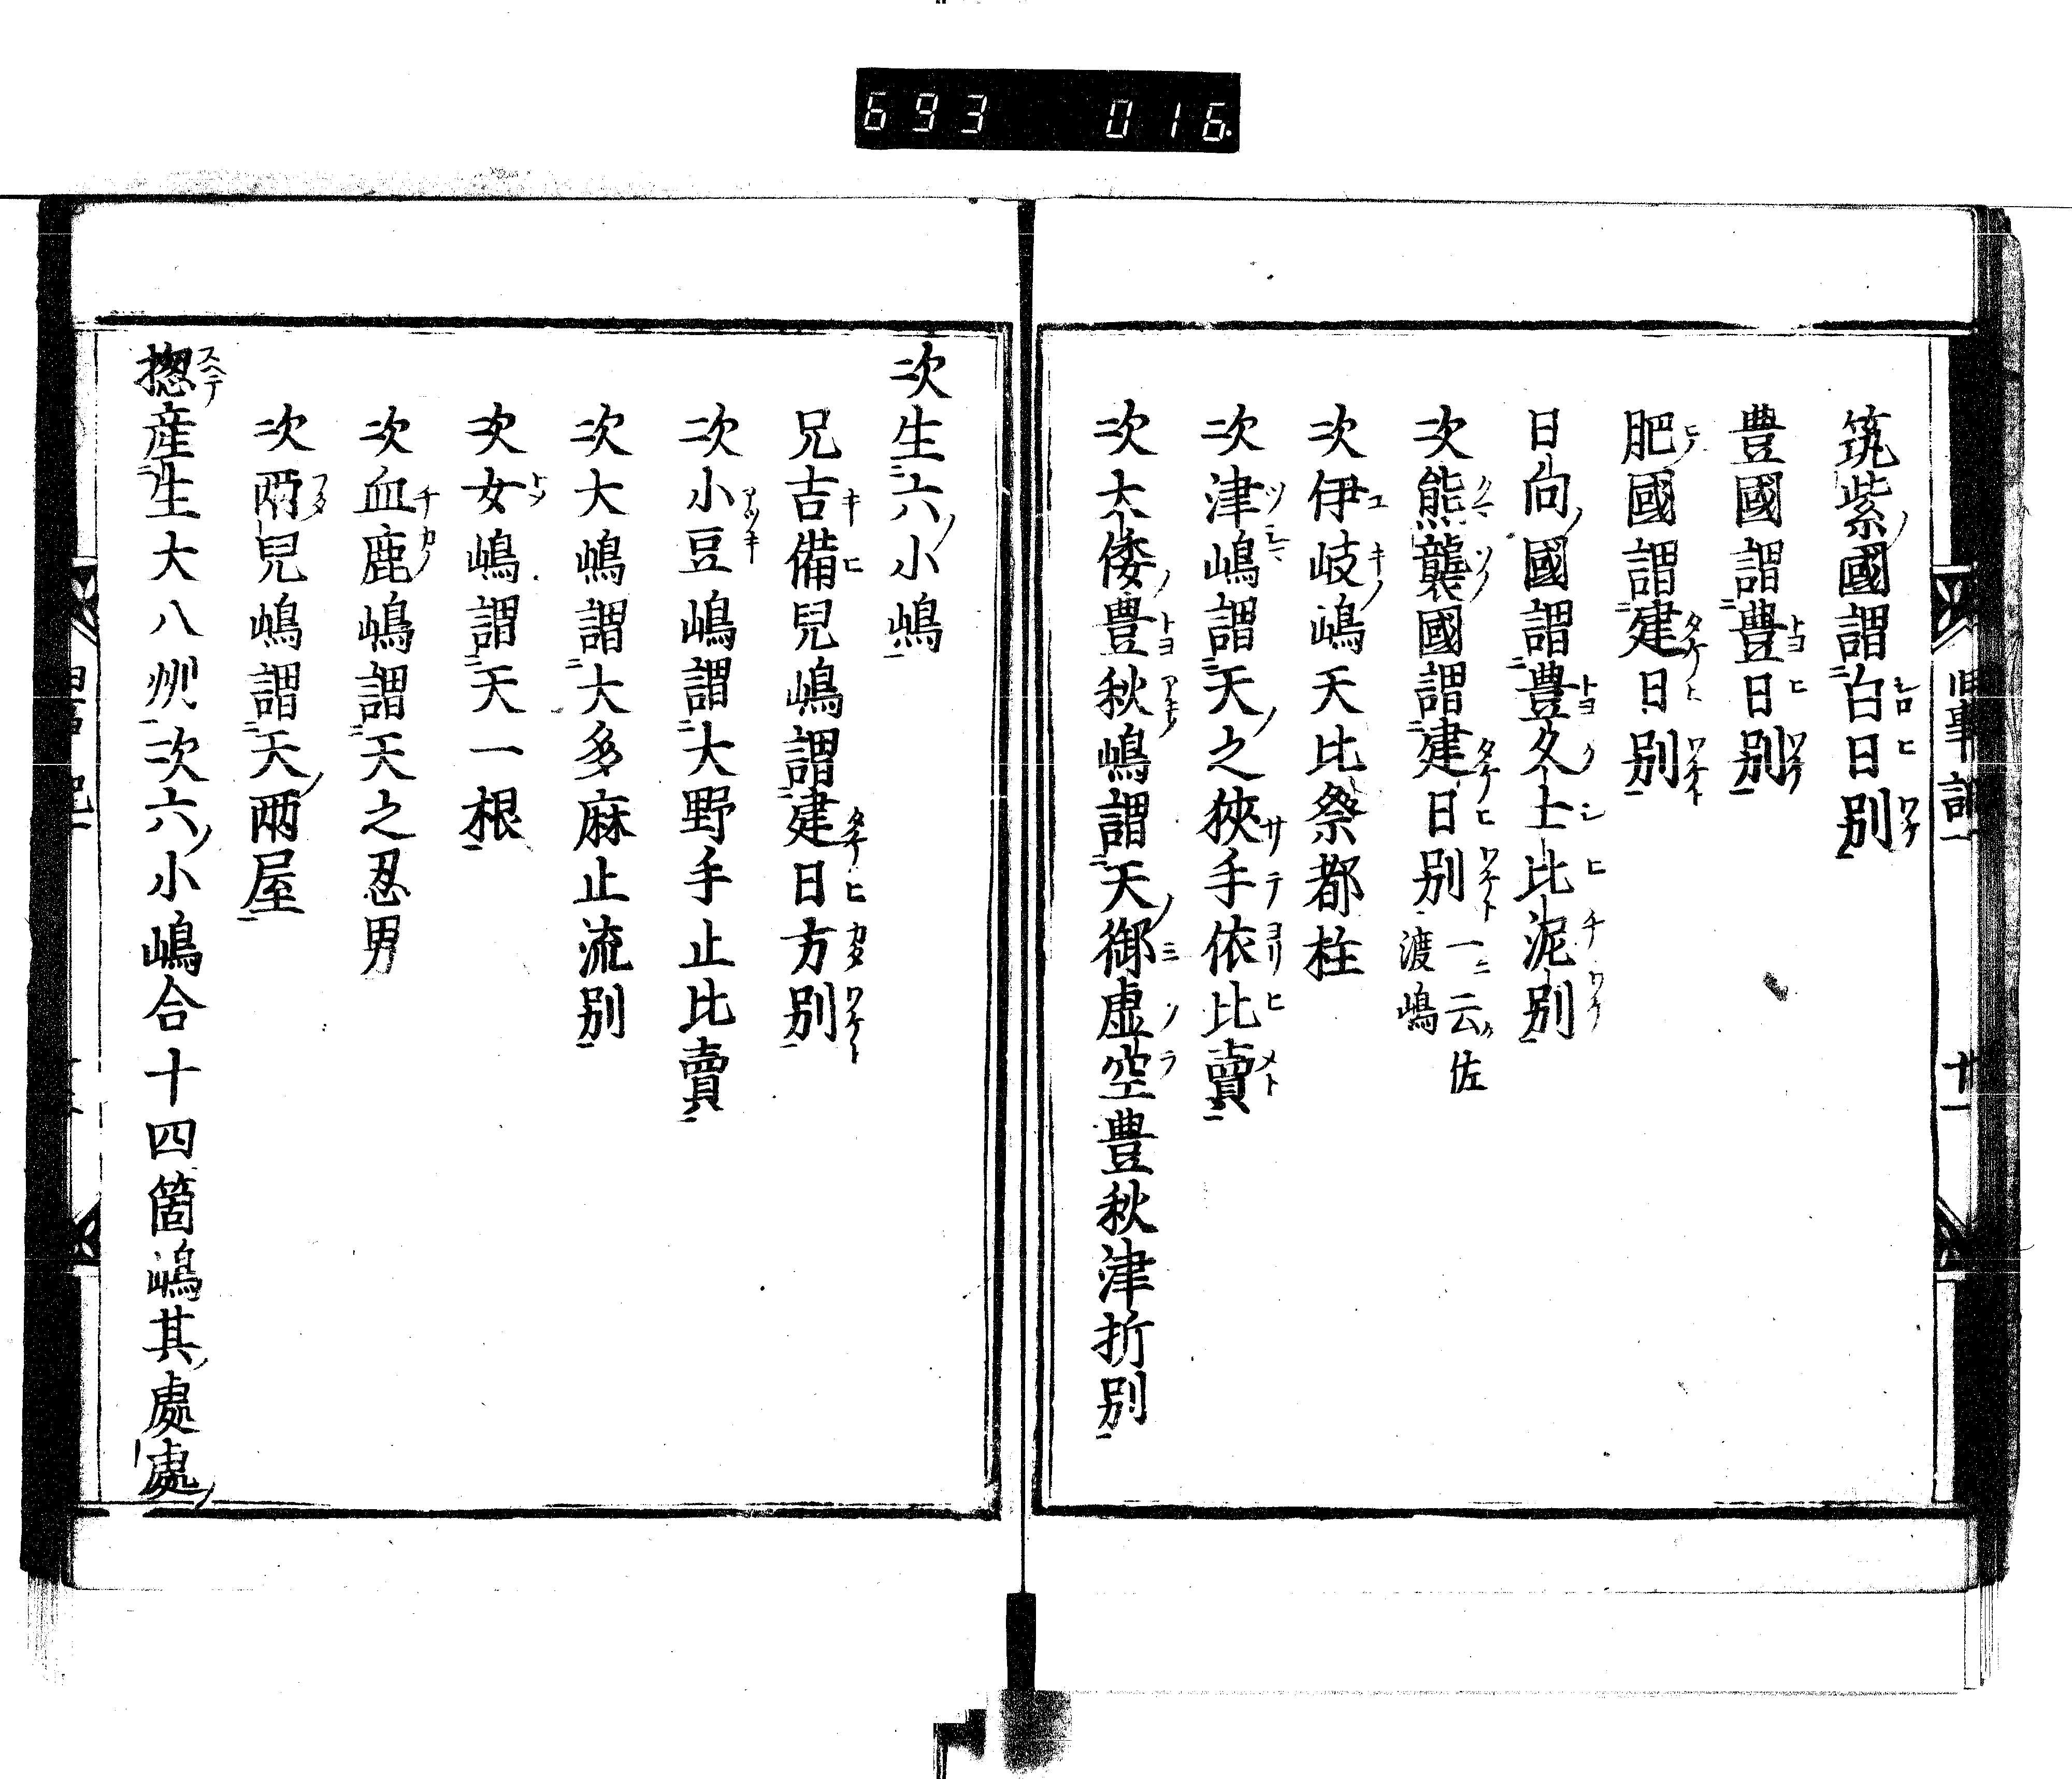 693 016
筑紫國謂白日別
豊國謂豊日別
肥國謂建日別
日向國謂豊久士比泥別
次熊襲國謂建日別一云佐渡嶋
次伊岐嶋天比登都柱
次津嶋謂天之狹手依比賣
次大倭豊秋嶋謂天御虚空豊秋津折別
次生六小嶋
兄吉備兒嶋謂建日方別
次小豆嶋謂大野手止比賣
次大嶋謂大多麻止流別
次女嶋謂天一根
次血鹿嶋謂天之忍男
次兩兒嶋謂天兩屋
摠産生大八州次六小嶋合十四箇嶋其處處
十一